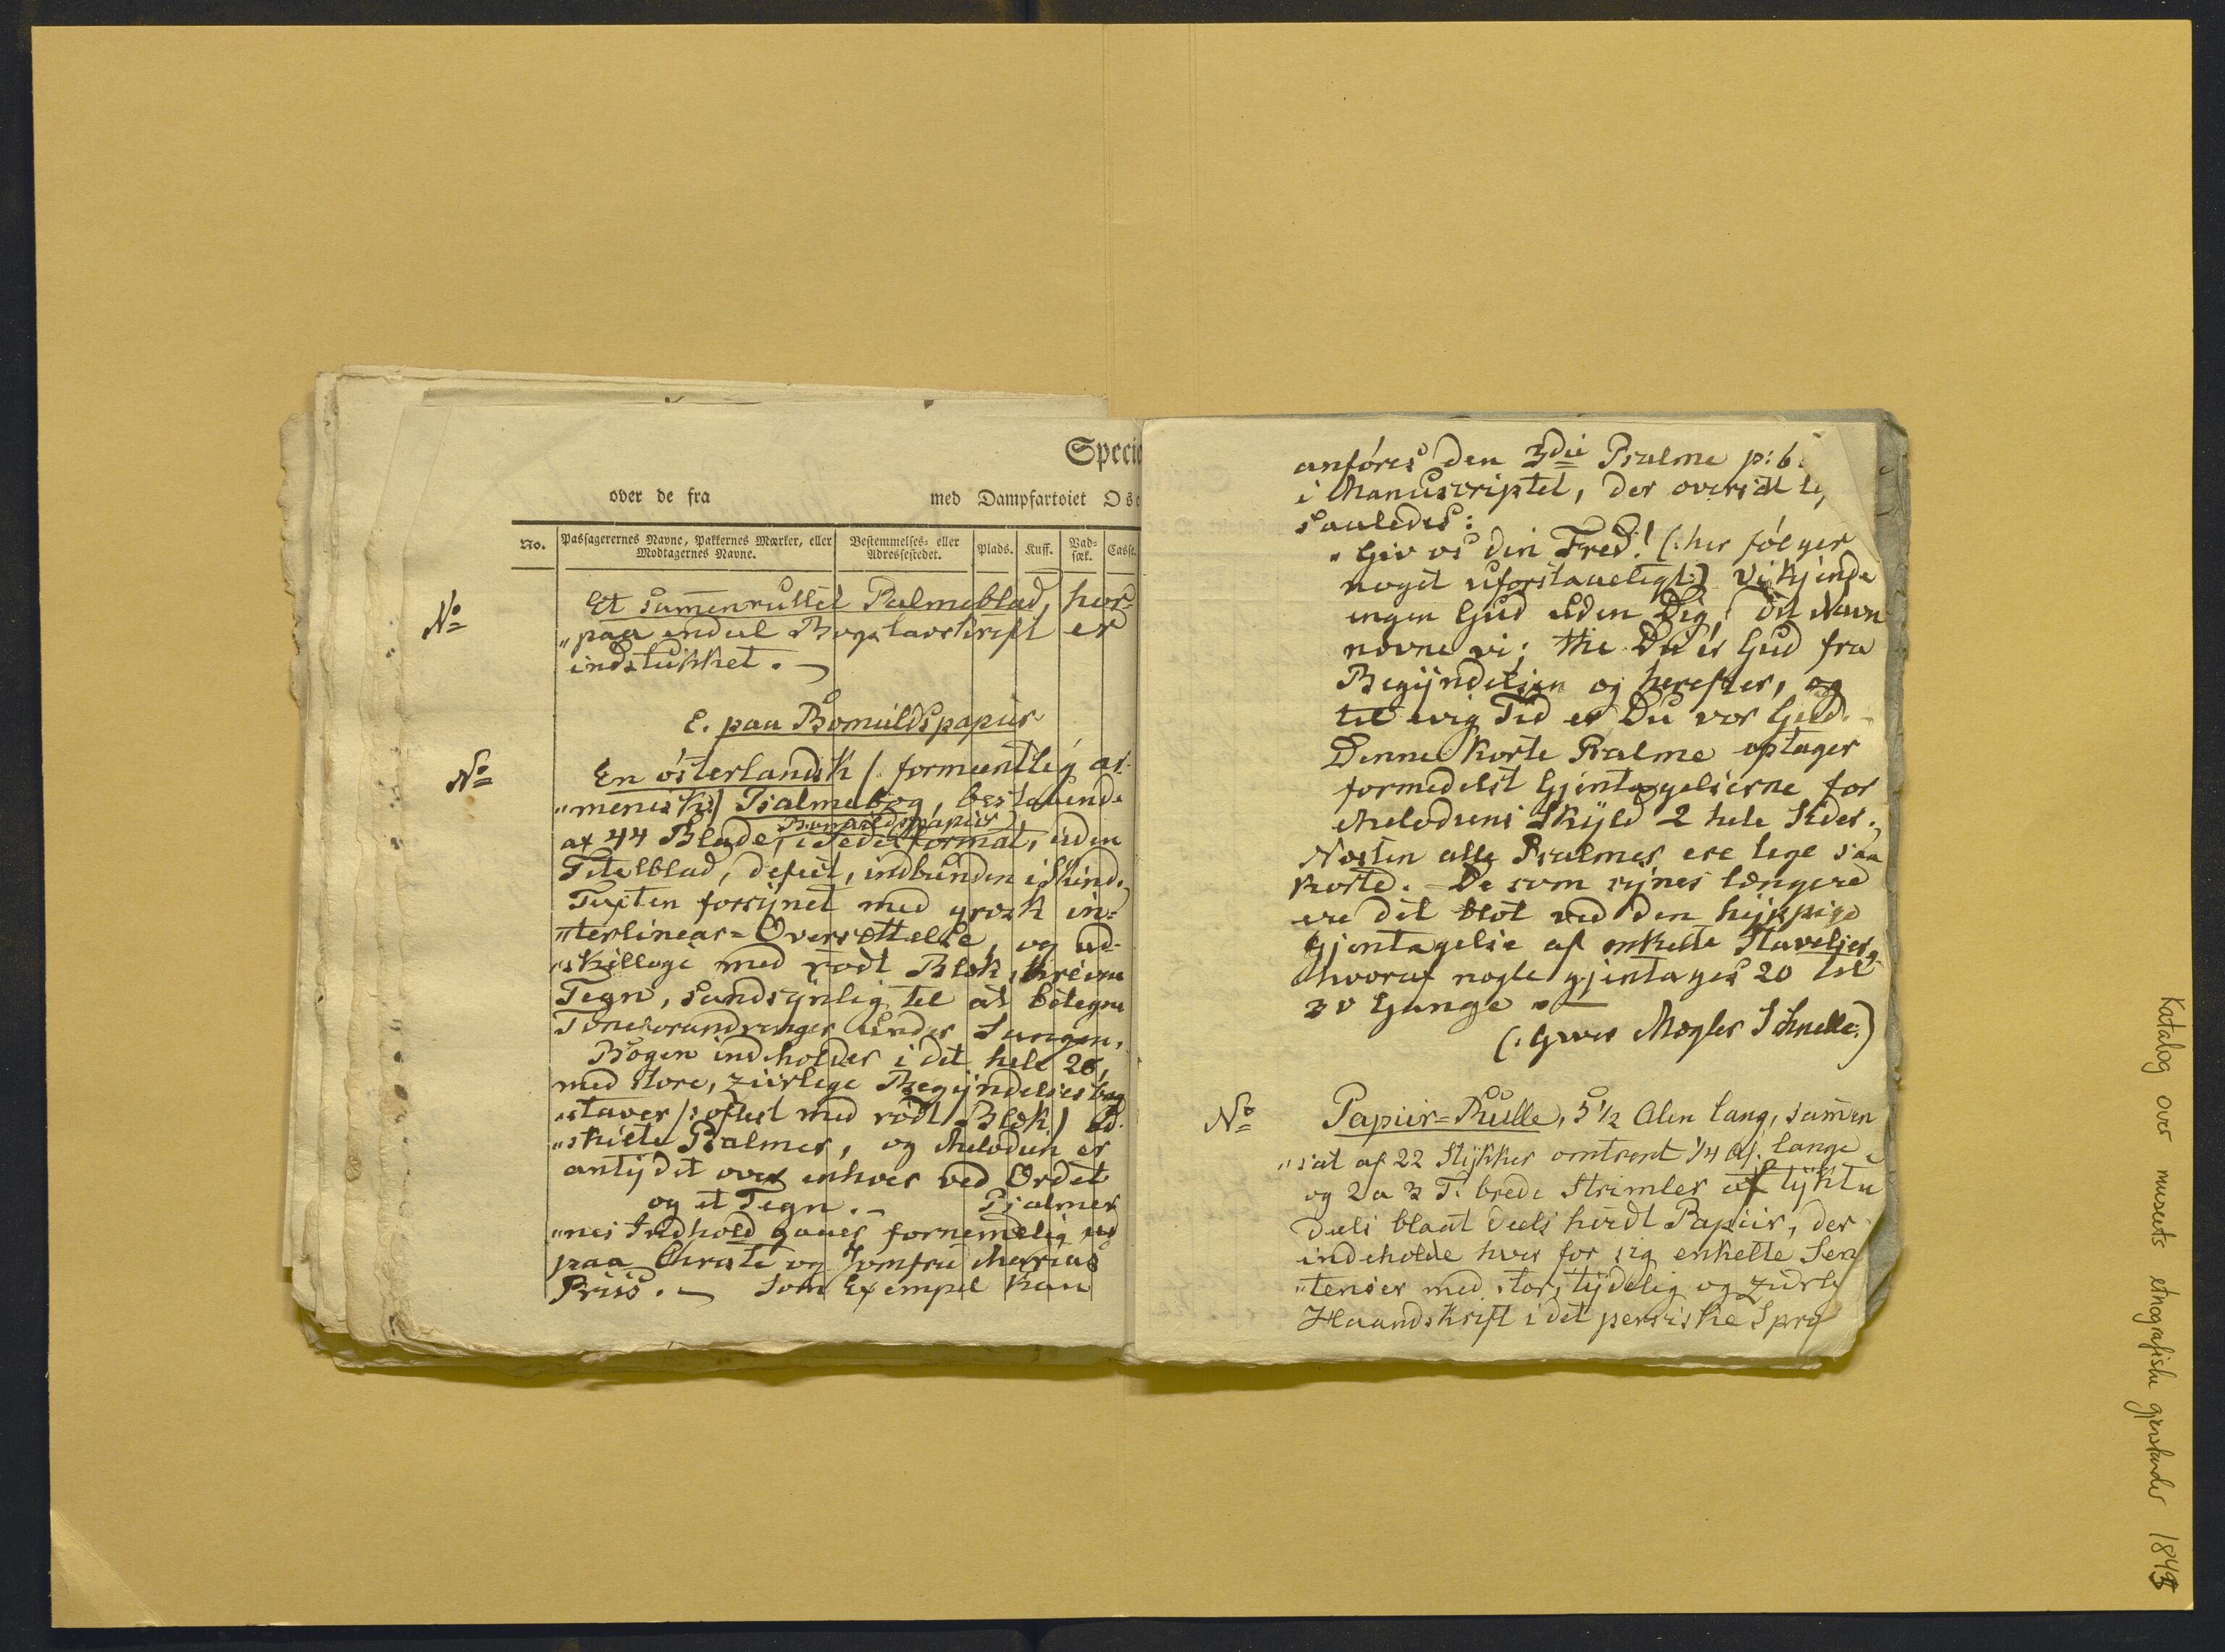 Specia
over de fra med Dampfartøiet Osc
No. Passagerernes Navne, Pakkernes Mærker, eller Modtagernes Navne. Bestemmelses- eller Adressestedet. Plads. Kuff. Vad-sæk. Casse.
No Et sam̅enrullet Palmeblad, hvor=
"paa endeel Bogstavskrift er
indstukket. —
E. paa Bomuldspapiir
No En österlandsk (: formeentlig ar-
"menisk:) Psalmebog, bestaaende
Bomuldspapiir
af 44 Blade, i Sedesformat, uden
Titelblad, defect, indbunden i Skind.
Texten forsÿnet med græsk in=
"terlinear=Oversættelse, og ud-
"skillige med rødt Blæk skrevne
Tegn, sandsÿnlig til at betegne
Toneforandringer under Sangen.
Bogen indeholder i det hele 26,
med store, ziirlige Begÿndelsesbog
"staver (: oftest med rødt Blæk) ad-
"skilte Psalmer, og Melodien er
antÿdet over enhver ved Ordet
og et Tegn. — Psalmer
"nes Indhold gaaer fornemelig ud
paa Christi og Jomfru Marias
Priis. — Som Exempel kan
anföres den 3die Psalme p: 6.
i Manuscriptet, der oversat ly
saaledes:
"Giv os din Fred! (: her fölger
noget uforstaaeligt:) Vi kjende
ingen Gud uden Dig, dit Navn
nævne vi; thi Du er Gud fra
Begÿndelsen og herefter, og
til evig Tid er Du vor Gud. —
Denne korte Psalme optager
formedelst Gjentagelserne for
Melodiens Skÿld 2 hele Sider.
Næsten alle Psalmer ere lige saa
korte. — De som sÿnes længere
ere det blot ved den hÿppige
Gjentagelse af enkelte Stavelser,
hvoraf nogle gjentages 20 til
30 Gange. —
(: Mægler Schnelle:)
No Papiir=Rulle, 5 1/2 Alen lang, sam̅en
"sat af 22 Stÿkker omtrent 1/4 Al. lange
og 2 a 3 T. brede Strimler af tÿkt
deels blaat deels hvidt Papiir, der
indeholde hver for sig enkelte Sen
"tenser med stor, tÿdelig og ziirli
Haandskrift i det persiske Sprog
Katalog over museets etnografiske gjenstander 1845